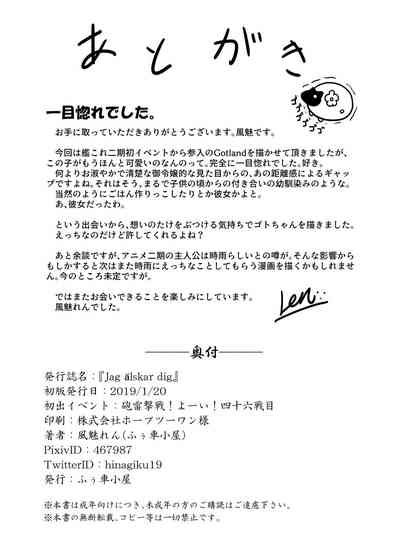 あとがき
ゴゴゴゴゴ
一目惚れでした。
お手に取っていただきありがとうございます。風魅です。
今回は艦これ二期初イベントから参入のGotlandを描かせて頂きましたが、
この子がもうほんと可愛いのなんのって。完全に一目惚れでした。好き。
何よりお淑やかで清楚な御令嬢的な見た目からの、あの距離感によるギャッ
プですよね。それはそう、まるで子供の頃からの付き合いの幼馴染みのような。
当然のようにごはん作りっこしたりとか彼女かよと。
あ、彼女だったわ。
という出会いから、想いのたけをぶつける気持ちでゴトちゃんを描きました。
えっちなのだけど許してくれるよね？
あと余談ですが、アニメ二期の主人公は時雨らしいとの噂が。そんな影響から
もしかすると次はまた時雨にえっちなことしてもらう漫画を描くかもしれませ
ん。今のところ未定ですが。
ではまたお会いできることを楽しみにしています。
風魅れんでした。
Len
奥付
発行誌名：『Jag älskar dig』
初版発行日：2019/1/20
初出イベント：砲雷撃戦！よーい！四十六戦目
印刷：株式会社ホープツーワン様
著者：風魅れん（ふぅ車小屋）
PixivID：467987
TwitterID：hinagiku19
発行：ふぅ車小屋
※本書は成年向けにつき、未成年の方のご購読はご遠慮下さい。
※本書の無断転載、コピー等は一切禁止です。